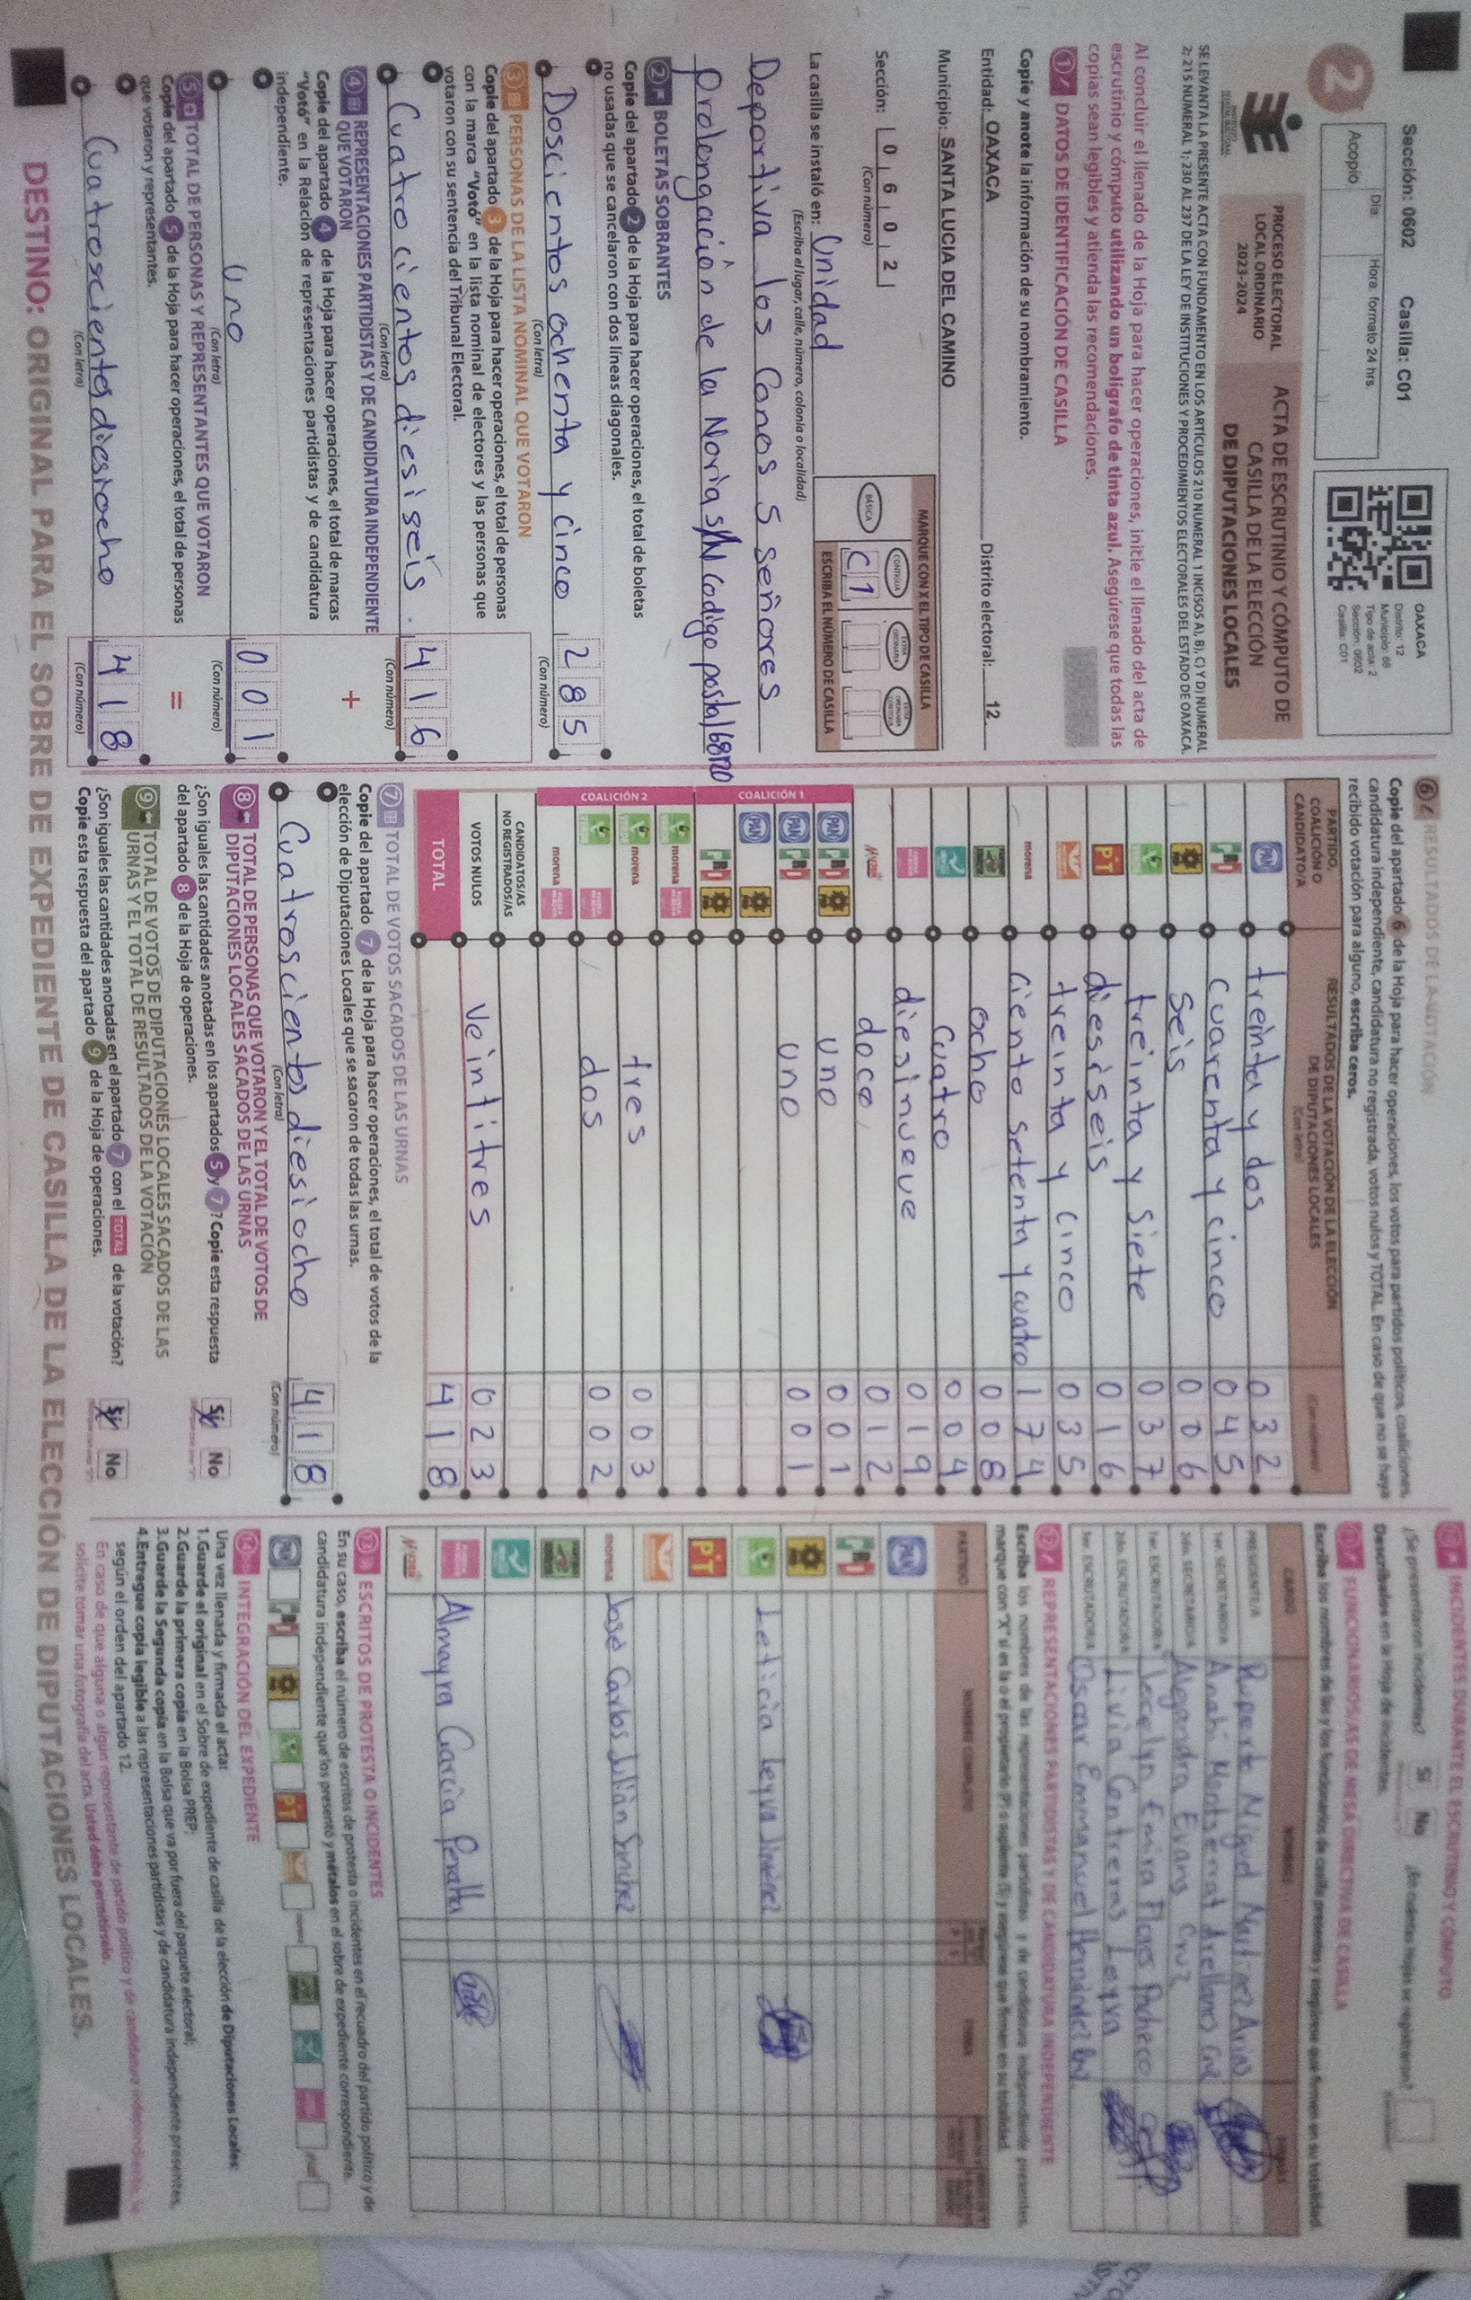 Sección: 0602 Casilla: C01
2
Acopio
Día:
Hora: formato 24 hrs.
OAXACA
Distrito: 12
Municipio: 66
Tipo de acta: 2
Sección: 0602
Casilla: C01
PROCESO ELECTORAL
LOCAL ORDINARIO
2023-2024
ACTA DE ESCRUTINIO Y CÓMPUTO DE
CASILLA DE LA ELECCIÓN
DE DIPUTACIONES LOCALES
SE LEVANTA LA PRESENTE ACTA CON FUNDAMENTO EN LOS ARTÍCULOS 210 NUMERAL 1 INCISOS A), B), C) Y D) NUMERAL
2; 215 NUMERAL 1; 230 AL 237 DE LA LEY DE INSTITUCIONES Y PROCEDIMIENTOS ELECTORALES DEL ESTADO DE OAXACA.
Al concluir el llenado de la Hoja para hacer operaciones, inicie el llenado del acta de
escrutinio y cómputo utilizando un bolígrafo de tinta azul. Asegúrese que todas las
copias sean legibles y atienda las recomendaciones.
1 DATOS DE IDENTIFICACIÓN DE CASILLA
Copie y anote la información de su nombramiento.
Entidad: OAXACA Distrito electoral: 12
Municipio: SANTA LUCIA DEL CAMINO
Sección: 0 6 0 2
(Con número)
MARQUE CON X EL TIPO DE CASILLA
BÁSICA
CONTIGUA
C 1
ESCRIBA EL NÚMERO DE CASILLA
La casilla se instaló en: Unidad
(Escriba el lugar, calle, número, colonia o localidad)
Deportiva los Canos 5 señores
Prolongación de la Noria s/N Codigo postal 68120
2 BOLETAS SOBRANTES
Copie del apartado 2 de la Hoja para hacer operaciones, el total de boletas
no usadas que se cancelaron con dos líneas diagonales.
Doscientos ochenta y cinco 2 8 5
(Con letra) (Con número)
3 PERSONAS DE LA LISTA NOMINAL QUE VOTARON
Copie del apartado 3 de la Hoja para hacer operaciones, el total de personas
con la marca "Votó" en la lista nominal de electores y las personas que
votaron con su sentencia del Tribunal Electoral.
Cuatrocientos diesiseis 4 1 6
(Con letra) (Con número)
4 REPRESENTACIONES PARTIDISTAS Y DE CANDIDATURA INDEPENDIENTE
QUE VOTARON
+
Copie del apartado 4 de la Hoja para hacer operaciones, el total de marcas
"Votó" en la Relación de representaciones partidistas y de candidatura
independiente.
Uno 0 0 1
(Con letra) (Con número)
5 TOTAL DE PERSONAS Y REPRESENTANTES QUE VOTARON
=
Copie del apartado 5 de la Hoja para hacer operaciones, el total de personas
que votaron y representantes.
Cuatroscientos diesiocho 4 1 8
(Con letra) (Con número)
6 RESULTADOS DE LA VOTACIÓN
Copie del apartado 6 de la Hoja para hacer operaciones, los votos para partidos políticos, coaliciones,
candidatura independiente, candidatura no registrada, votos nulos y TOTAL. En caso de que no se haya
recibido votación para alguno, escriba ceros.
PARTIDO,
COALICIÓN O
CANDIDATO/A
RESULTADOS DE LA VOTACIÓN DE LA ELECCIÓN
DE DIPUTACIONES LOCALES
(Con letra)
PAN treinta y dos 0 3 2
PRI cuarenta y cinco 0 4 5
PRD Seis 0 0 6
treinta y siete 0 3 7
PT diesiseis 0 1 6
treinta y cinco 0 3 5
morena Ciento setenta y cuatro 1 7 4
ocho 0 0 8
Cuatro 0 0 4
diesinueve 0 1 9
MUJER doce 0 1 2
COALICIÓN 1
PAN PRI PRD uno 0 0 1
PAN PRI uno 0 0 1
PAN PRD
PRI PRD
COALICIÓN 2
morena
morena tres 0 0 3
dos 0 0 2
morena
CANDIDATOS/AS
NO REGISTRADOS/AS
VOTOS NULOS Veintitres 0 2 3
TOTAL 4 1 8
7 TOTAL DE VOTOS SACADOS DE LAS URNAS
Copie del apartado 7 de la Hoja para hacer operaciones, el total de votos de la
elección de Diputaciones Locales que se sacaron de todas las urnas.
Cuatroscientos diesiocho 4 1 8
(Con letra) (Con número)
8 TOTAL DE PERSONAS QUE VOTARON Y EL TOTAL DE VOTOS DE
DIPUTACIONES LOCALES SACADOS DE LAS URNAS
¿Son iguales las cantidades anotadas en los apartados 5 y 7? Copie esta respuesta
del apartado 8 de la Hoja de operaciones.
Sí No
9 TOTAL DE VOTOS DE DIPUTACIONES LOCALES SACADOS DE LAS
URNAS Y EL TOTAL DE RESULTADOS DE LA VOTACIÓN
¿Son iguales las cantidades anotadas en el apartado 7 con el TOTAL de la votación?
Copie esta respuesta del apartado 9 de la Hoja de operaciones.
Sí No
10 INCIDENTES DURANTE EL ESCRUTINIO Y CÓMPUTO
¿Se presentaron incidentes? Sí No ¿En cuántas Hojas se registraron?
Descríbalos en la Hoja de incidentes.
11 FUNCIONARIOS/AS DE MESA DIRECTIVA DE CASILLA
Escriba los nombres de las y los funcionarios de casilla presentes y asegúrese que firmen en su totalidad.
CARGO NOMBRES FIRMAS
PRESIDENTE/A Ruperto Miguel Martinez Arias
1er. SECRETARIO/A Anahi Montserrat Arellanes Cruz
2do. SECRETARIO/A Alejandra Evans Cruz
1er. ESCRUTADOR/A Jocelyn Emira Flores Pacheco
2do. ESCRUTADOR/A Livia Contreras Leyva
3er. ESCRUTADOR/A Oscar Emmanuel Hernández
12 REPRESENTACIONES PARTIDISTAS Y DE CANDIDATURA INDEPENDIENTE
Escriba los nombres de las representaciones partidistas y de candidatura independiente presentes,
marque con "X" si es la o el propietario (P) o suplente (S) y asegúrese que firmen en su totalidad.
PARTIDO NOMBRE COMPLETO FIRMA
PAN
PRI
PRD
Leticia Leyva Jiménez
PT
morena José Carlos Julián Sánchez
Almayra García Peralta
MUJER
13 ESCRITOS DE PROTESTA O INCIDENTES
En su caso, escriba el número de escritos de protesta o incidentes en el recuadro del partido político y de
candidatura independiente que los presentó y métalos en el sobre de expediente correspondiente.
14 INTEGRACIÓN DEL EXPEDIENTE
Una vez llenada y firmada el acta:
1.Guarde el original en el Sobre de expediente de casilla de la elección de Diputaciones Locales;
2.Guarde la primera copia en la Bolsa PREP;
3.Guarde la Segunda copia en la Bolsa que va por fuera del paquete electoral;
4.Entregue copia legible a las representaciones partidistas y de candidatura independiente presentes,
según el orden del apartado 12.
En caso de que alguna o algún representante de partido político y de candidatura independiente, le
solicite tomar una fotografía del acta, Usted debe permitírselo.
DESTINO: ORIGINAL PARA EL SOBRE DE EXPEDIENTE DE CASILLA DE LA ELECCIÓN DE DIPUTACIONES LOCALES.